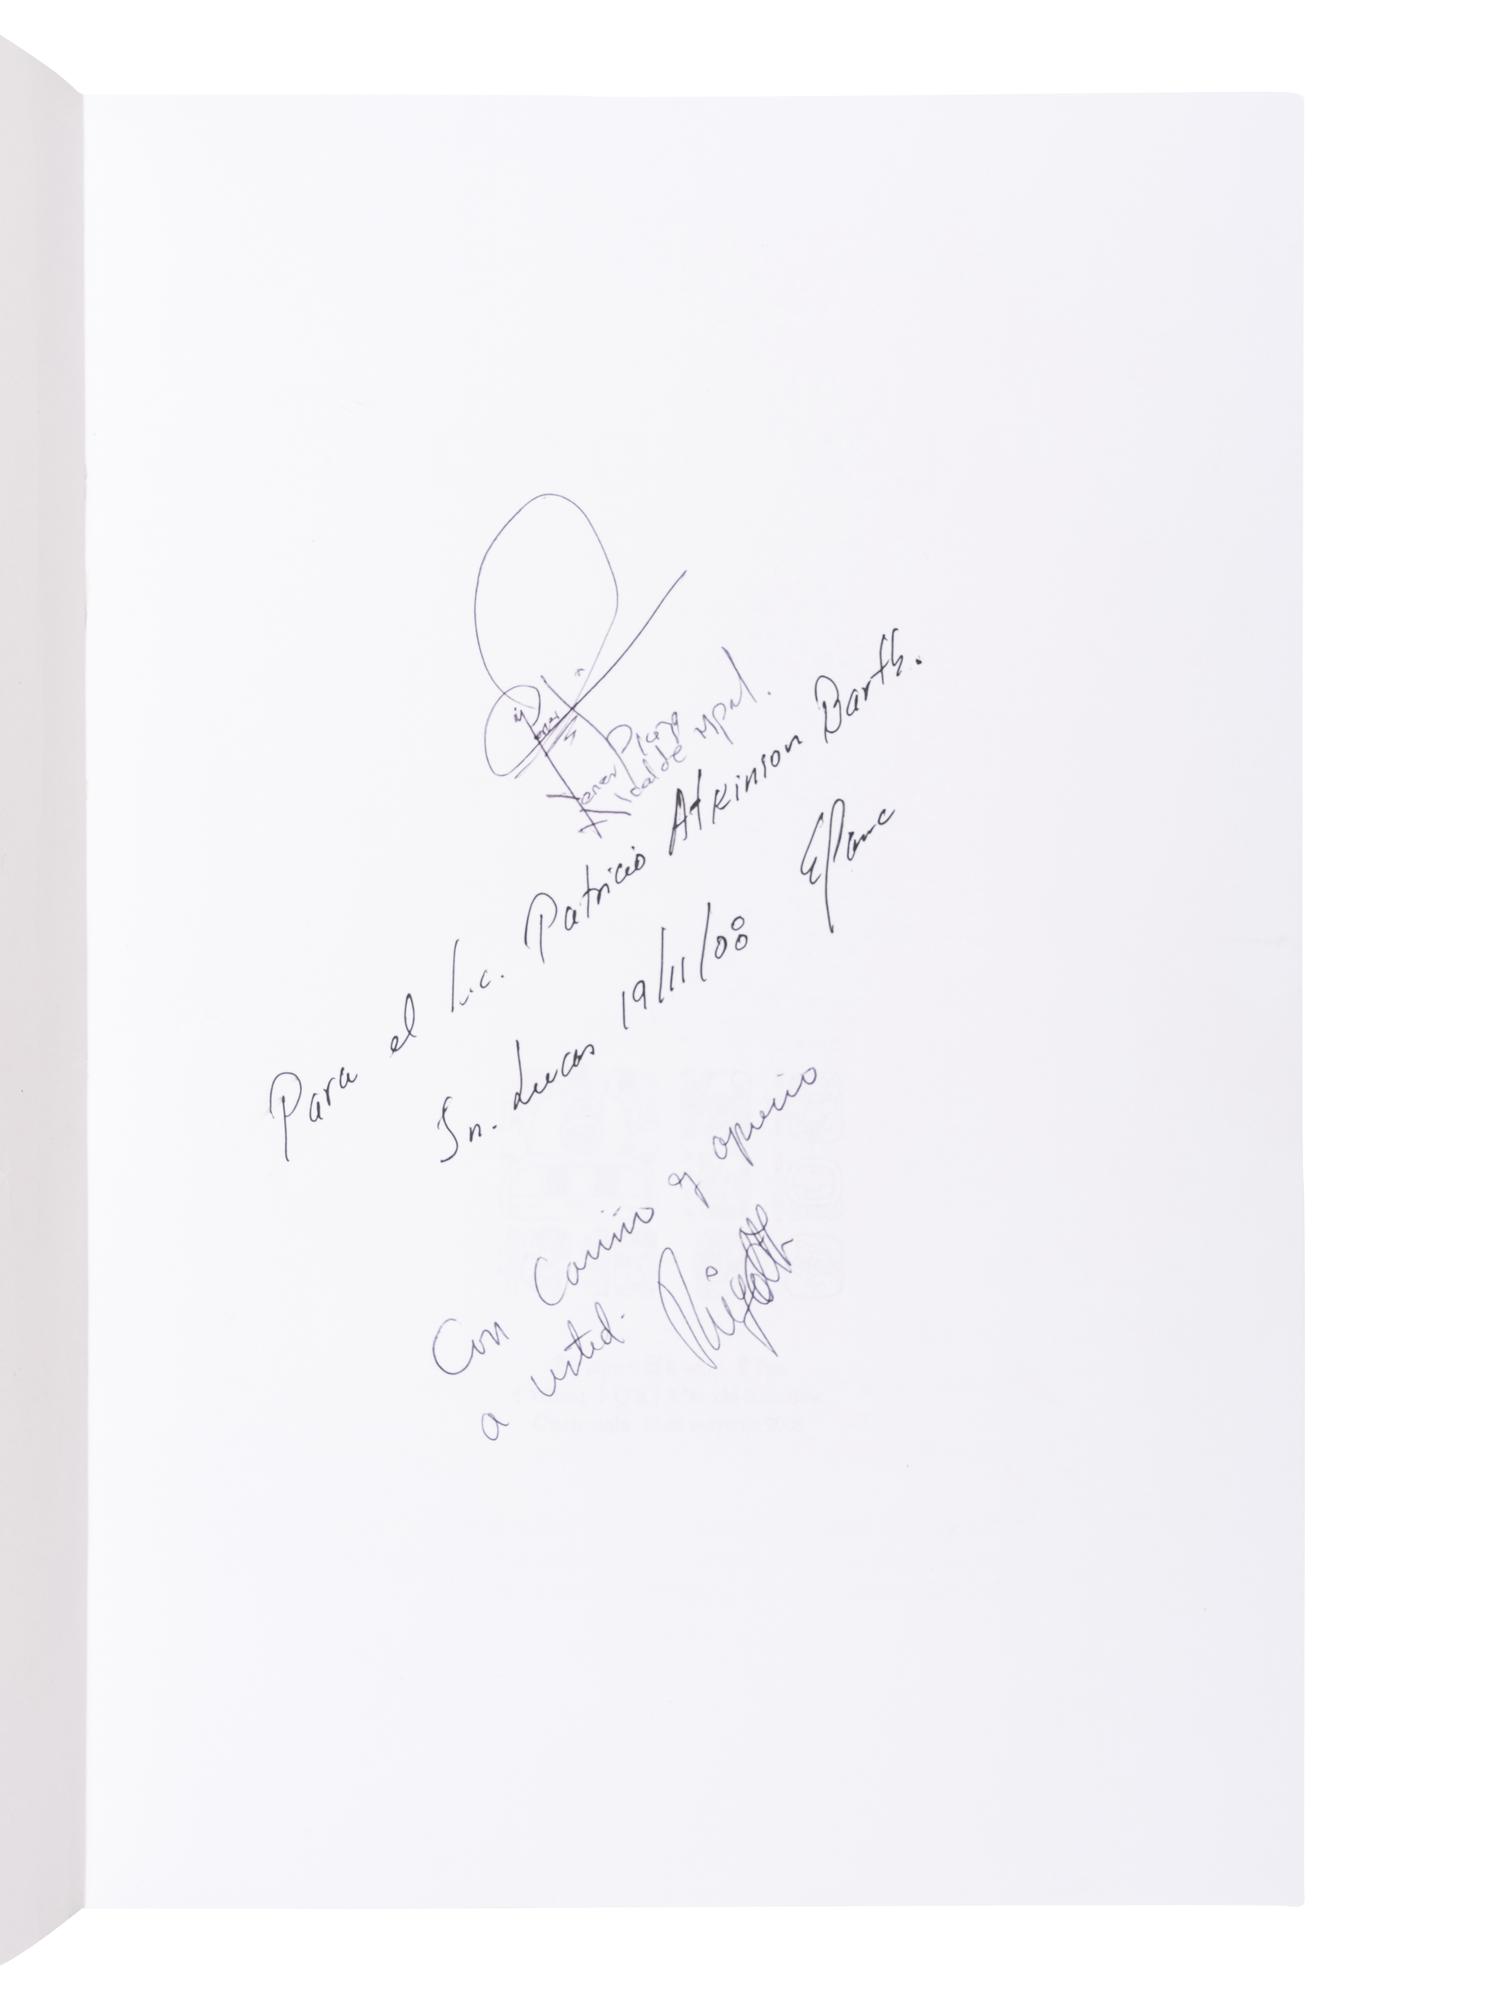 Yener Plaza
Alcalde Mpal.
Para el Lic. Patricio Atkinson Barth.
Sn. Lucas 19/11/08 EPanc
Con Cariño y aprecio
a usted.